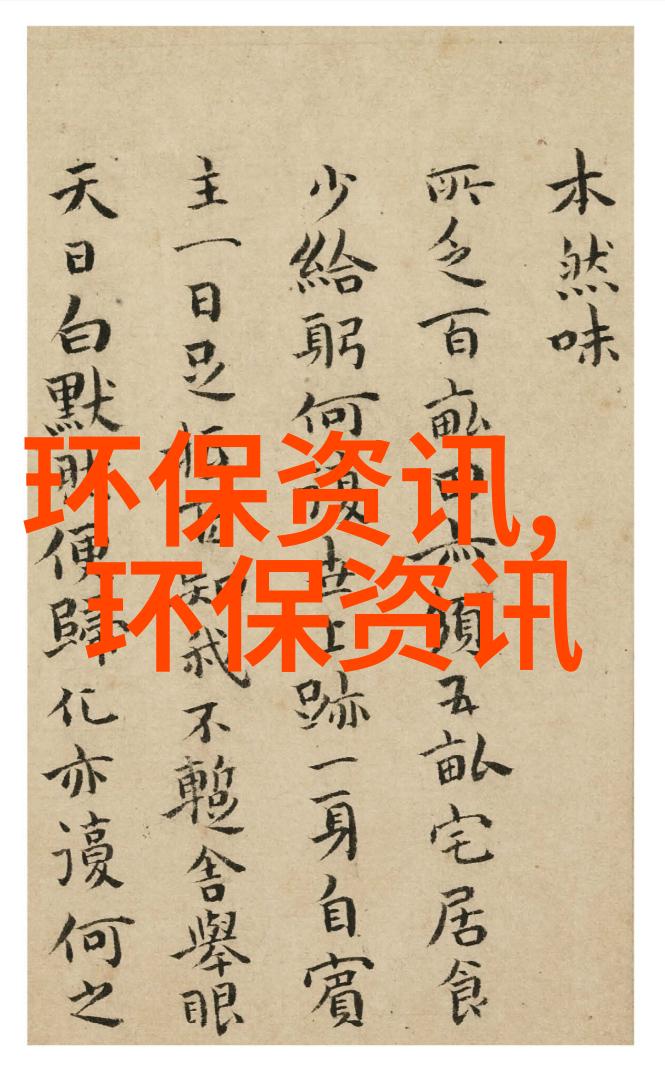 本然味
所乏百畝田無須五畝宅居食
少給躬何復世上跡一身自賓
主一日足知我不暫舍舉眼
天日白默便歸化亦復何之
环保资讯,
环保资讯